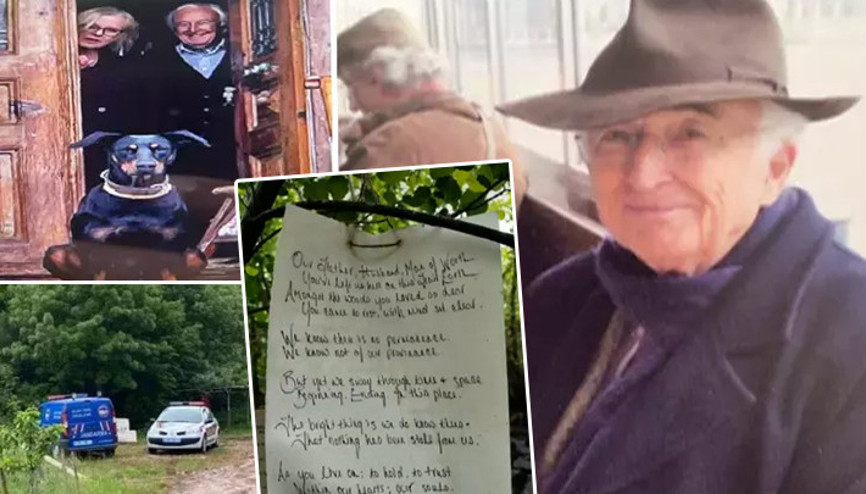 Our Father, Husband, Man of Worth
You've left us here on this Earth
Amongst the woods you loved so dear
You came to rest, with mind set clear.
We know there is no permanence
We know not of our provenance.
But yet we sway through time + space
Beginning. Ending. In this place.
The bright thing is we do know this.
That nothing has been stole from us.
As you live on: to hold, to trust
Within our hearts; our souls.
JANDARMA